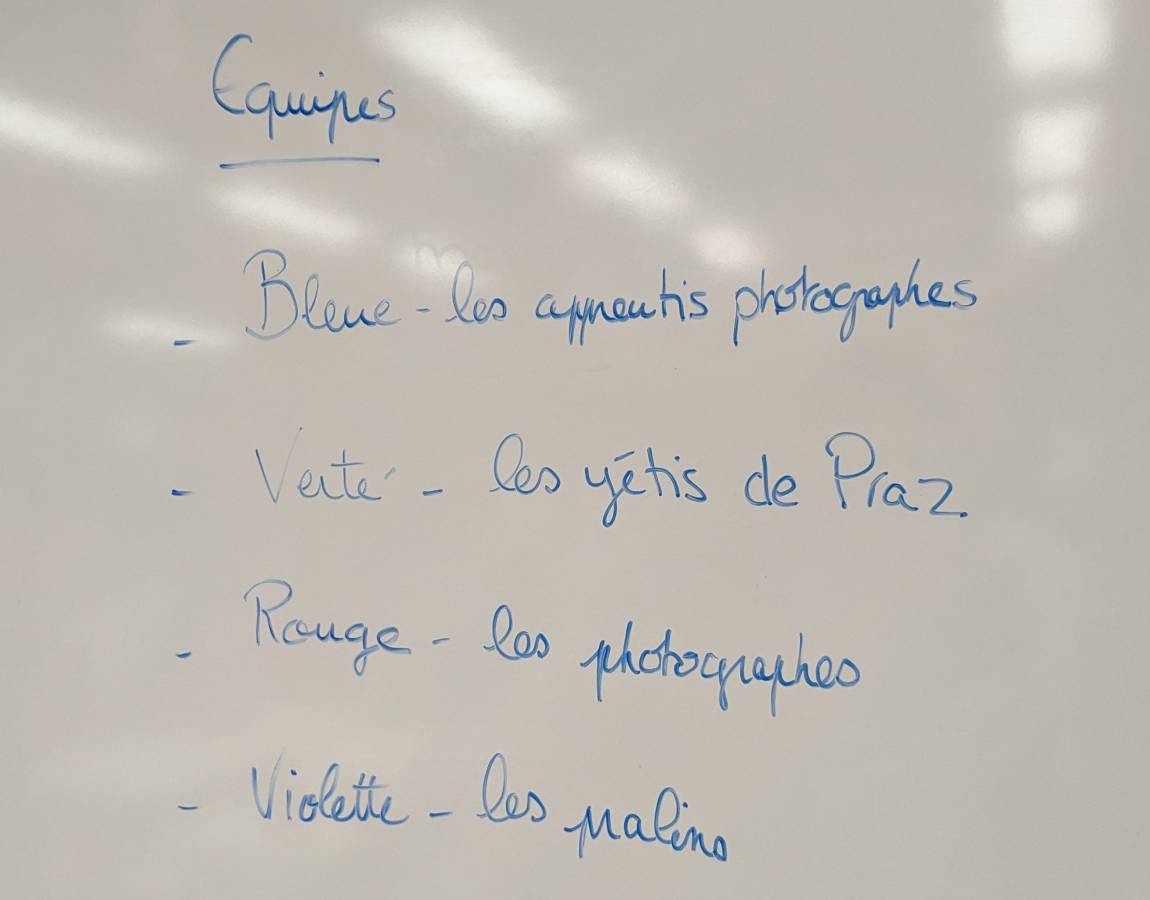 Equipes
- Bleue - les apprentis photographes
- Verte - les yétis de Praz.
- Rouge - les photographes
- Violette - les malins